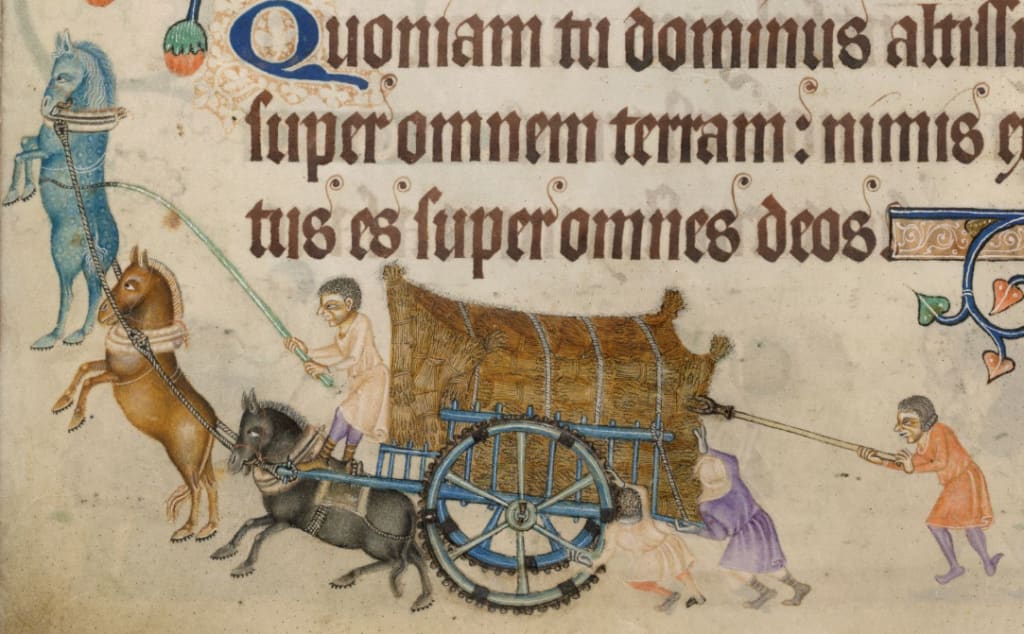 Quoniam tu dominus altissi
super omnem terram: nimis ex
tus es super omnes deos.